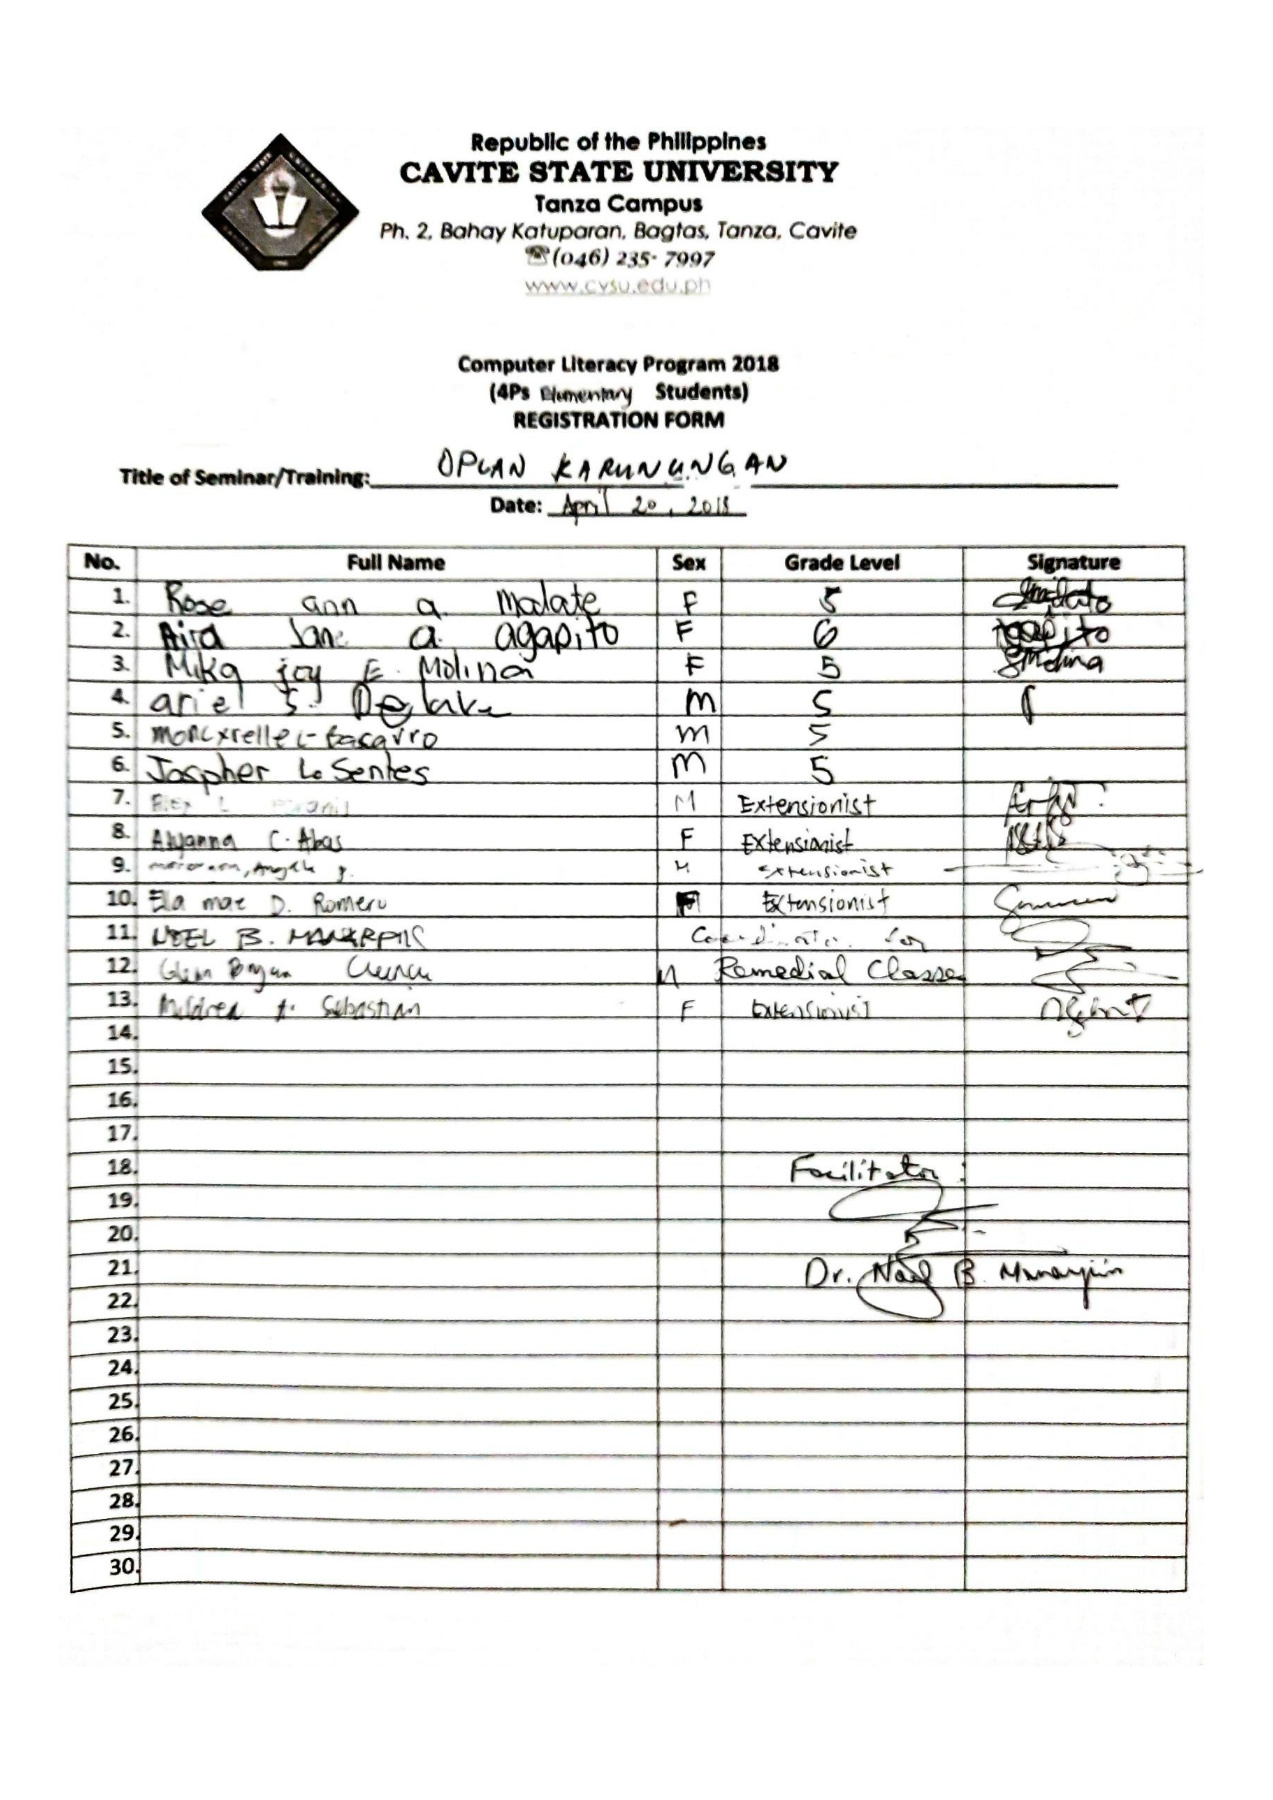 Republic of the Philippines
CAVITE STATE UNIVERSITY
Tanza Campus
Ph. 2, Bahay Katuparan, Bagtas, Tanza, Cavite
☎(046) 235- 7997
www.cvsu.edu.ph
Computer Literacy Program 2018
(4Ps Elementary Students)
REGISTRATION FORM
Title of Seminar/Training: OPLAN KARUNUNGAN
Date: April 20, 2018
No. Full Name Sex Grade Level Signature
1. Rose ann a. Malate F 5
2. Aira Jane a. agapito F 6 agapito
3. Mika joy E. Molina F 5
4. ariel S. M 5
5. M 5
6. Jaspher L. Sentes M 5
7. L M Extensionist
8. Alyanna C. Abas F Extensionist
9. M Extensionist
10. Ela mae D. Romero F Extensionist
11. NOEL B. Coordinator for
12. Glenn Bryan M Remedial Classes
13. Mildred A. Sebastian F Extensionist
14.
15.
16.
17.
18. Facilitator:
19.
20.
21. Dr. Noel B. Manarpiis
22.
23.
24.
25.
26.
27.
28.
29.
30.